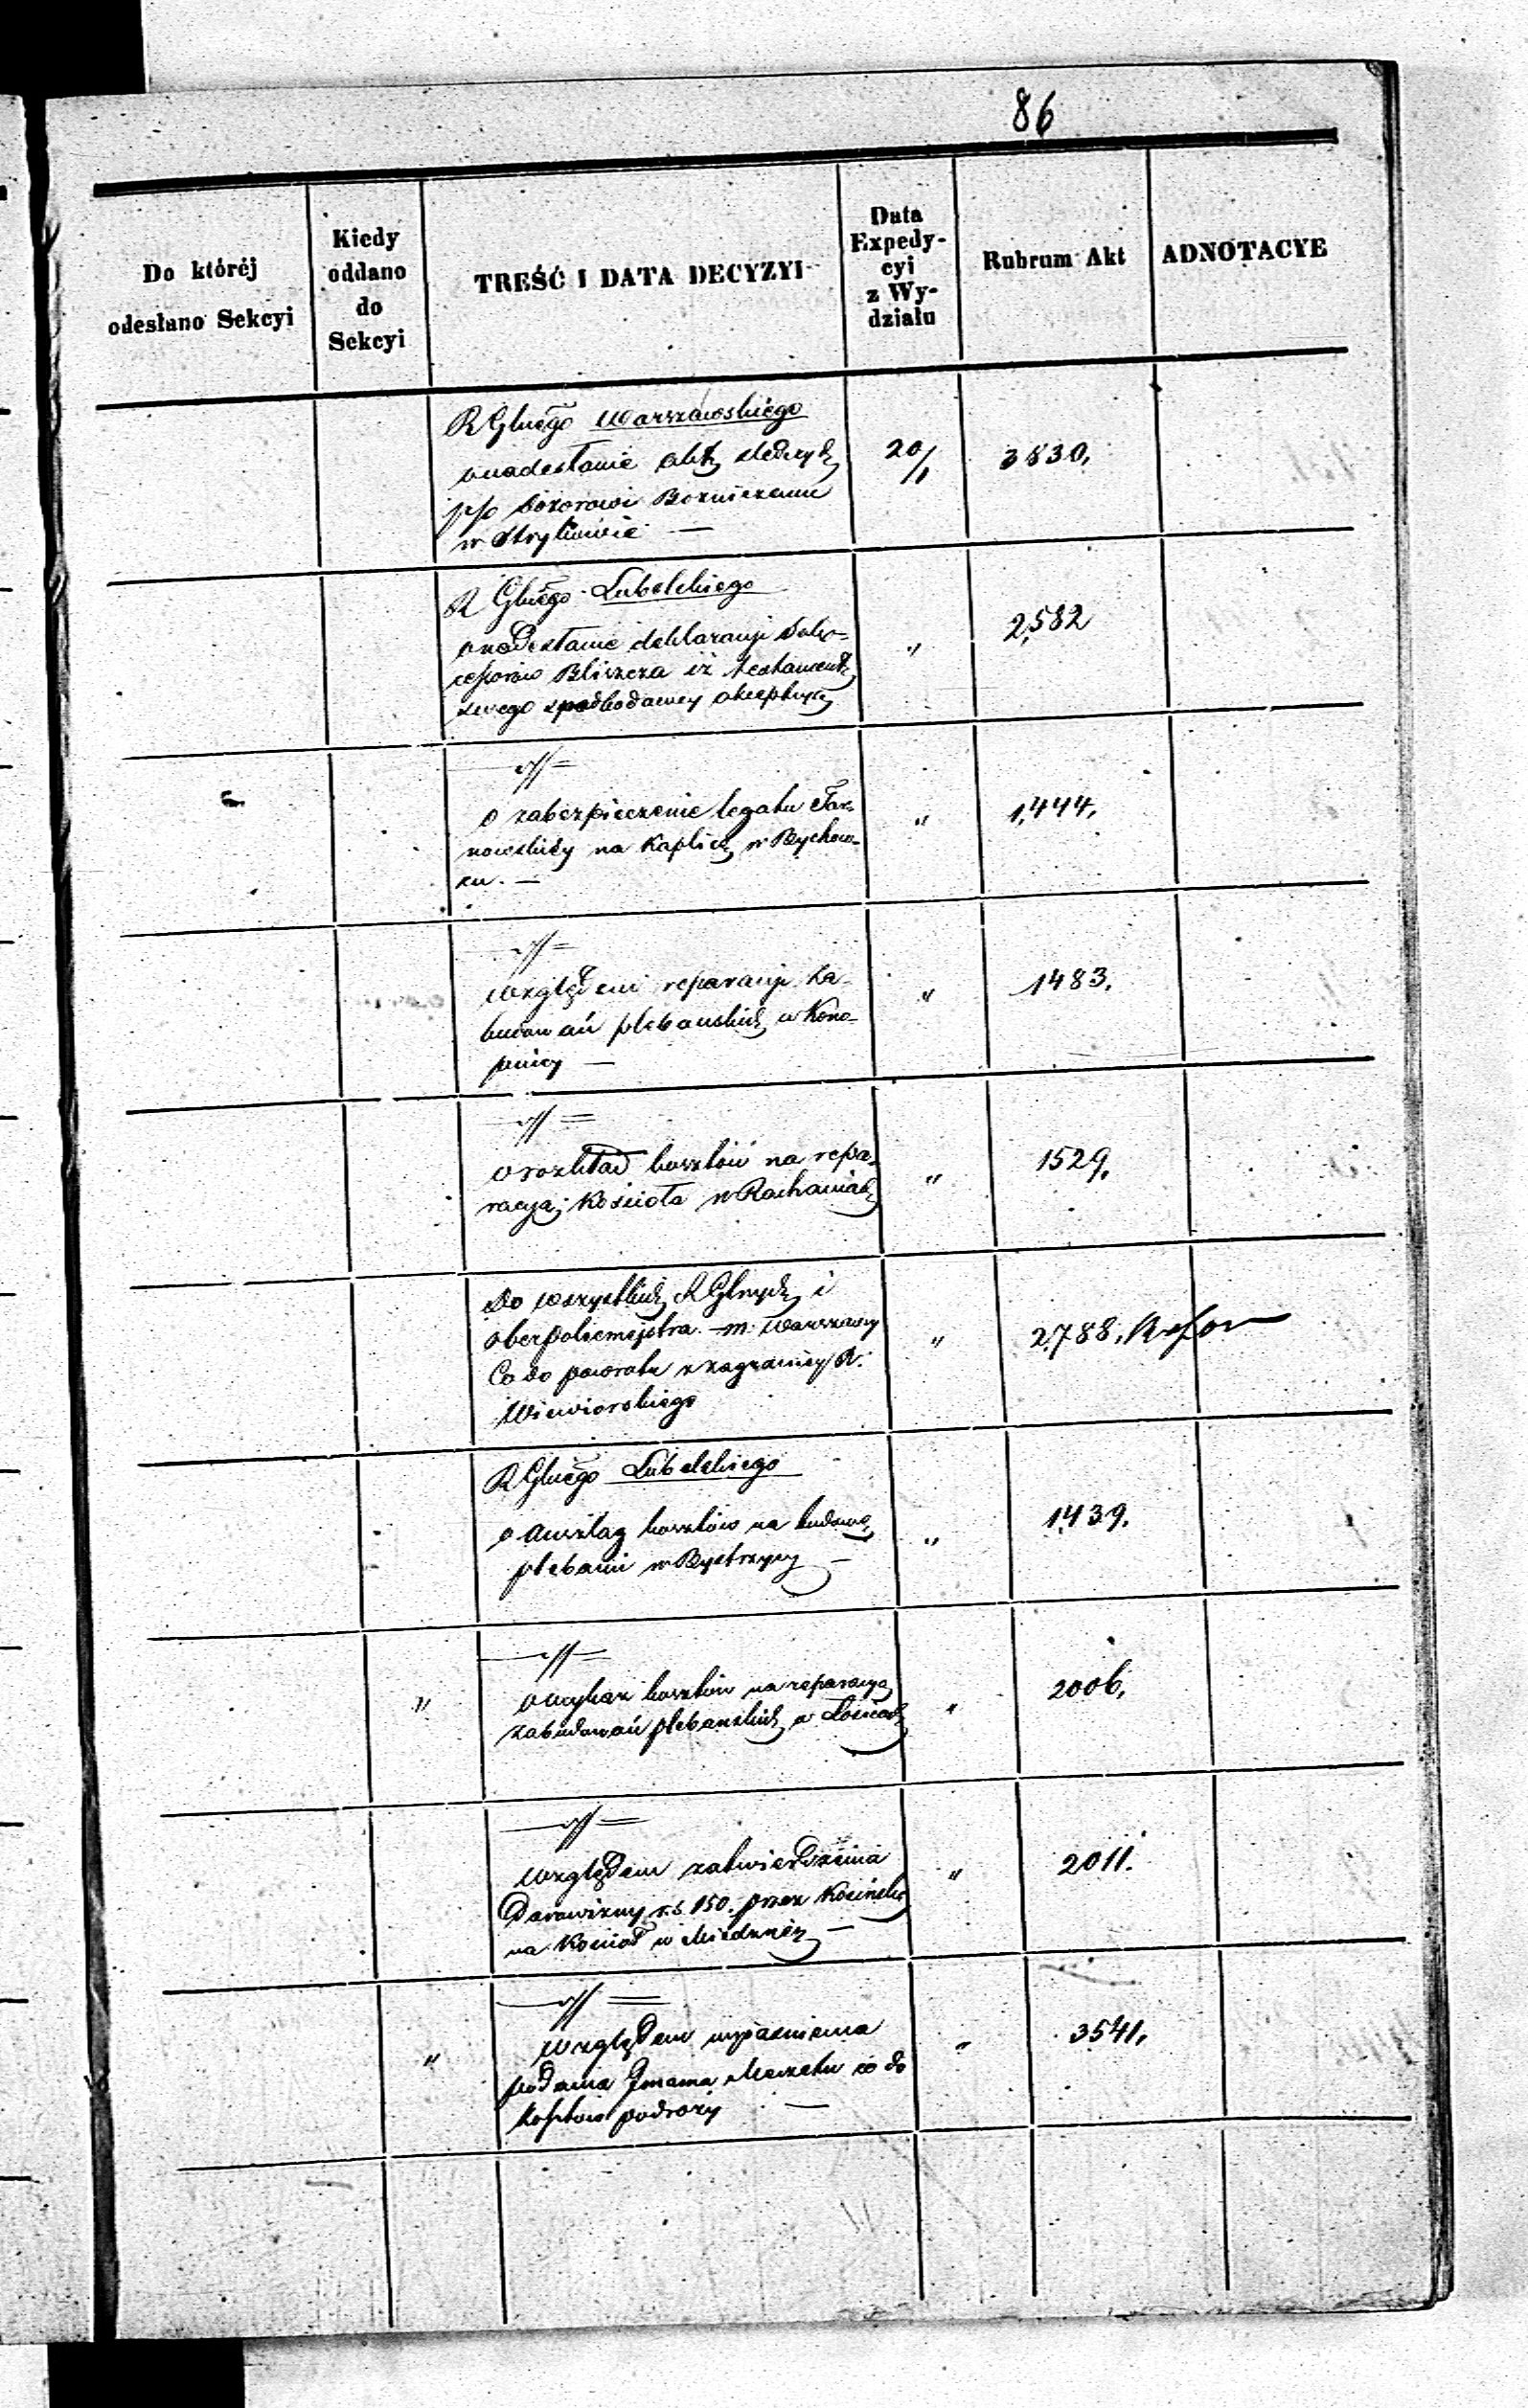 86
Do któréj
odesłano Sekcyi
Kiedy
oddano
do
Sekcyi
TREŚĆ I DATA DECYZYI
Data
Expedy-
cyi
z Wy-
działu
Rubrum Akt
ADNOTACYE
R Glnego Warszawskiego
o nadesłanie akt śledczych
p/o Dozorowi Bożniczemu
w Strykowie —
20/1
3830.
R Glnego Lubelskiego
o nadesłanie deklaracyi Sukc-
cessorów Bliszcza iż testament
swego spadkodawcy akceptują
"
2,582
o zabezpieczenie legatu Tar-
nowskiéy na Kaplicę w Bychaw-
ku. —
"
1,444.
względem reparacyi za-
budowań plebańskich w Kono-
pnicy —
"
1483.
o rozkład kosztów na repa-
racyą Kościoła w Rachaniach
"
1529.
Do wszystkich R Glnych i
Oberpolicmajstra m. Warszawy
Co do powrotu z zagranicy R.
Wiewiorskiego
"
2,788.
R Glnego Lubelskiego
o anszlag kosztów na budowę
plebanii w Bystrzycy —
"
1,439.
"
o wykaz kosztów na reparacyą
zabudowań plebańskich w Łosicach
"
2006.
względem zatwierdzenia
Darowizny r.s. 150. przez Kosińską
na Kościoł w
"
2011.
"
względem wyjaśnienia
podania Imama Meczetu co do
kosztów podroży —
"
3541.